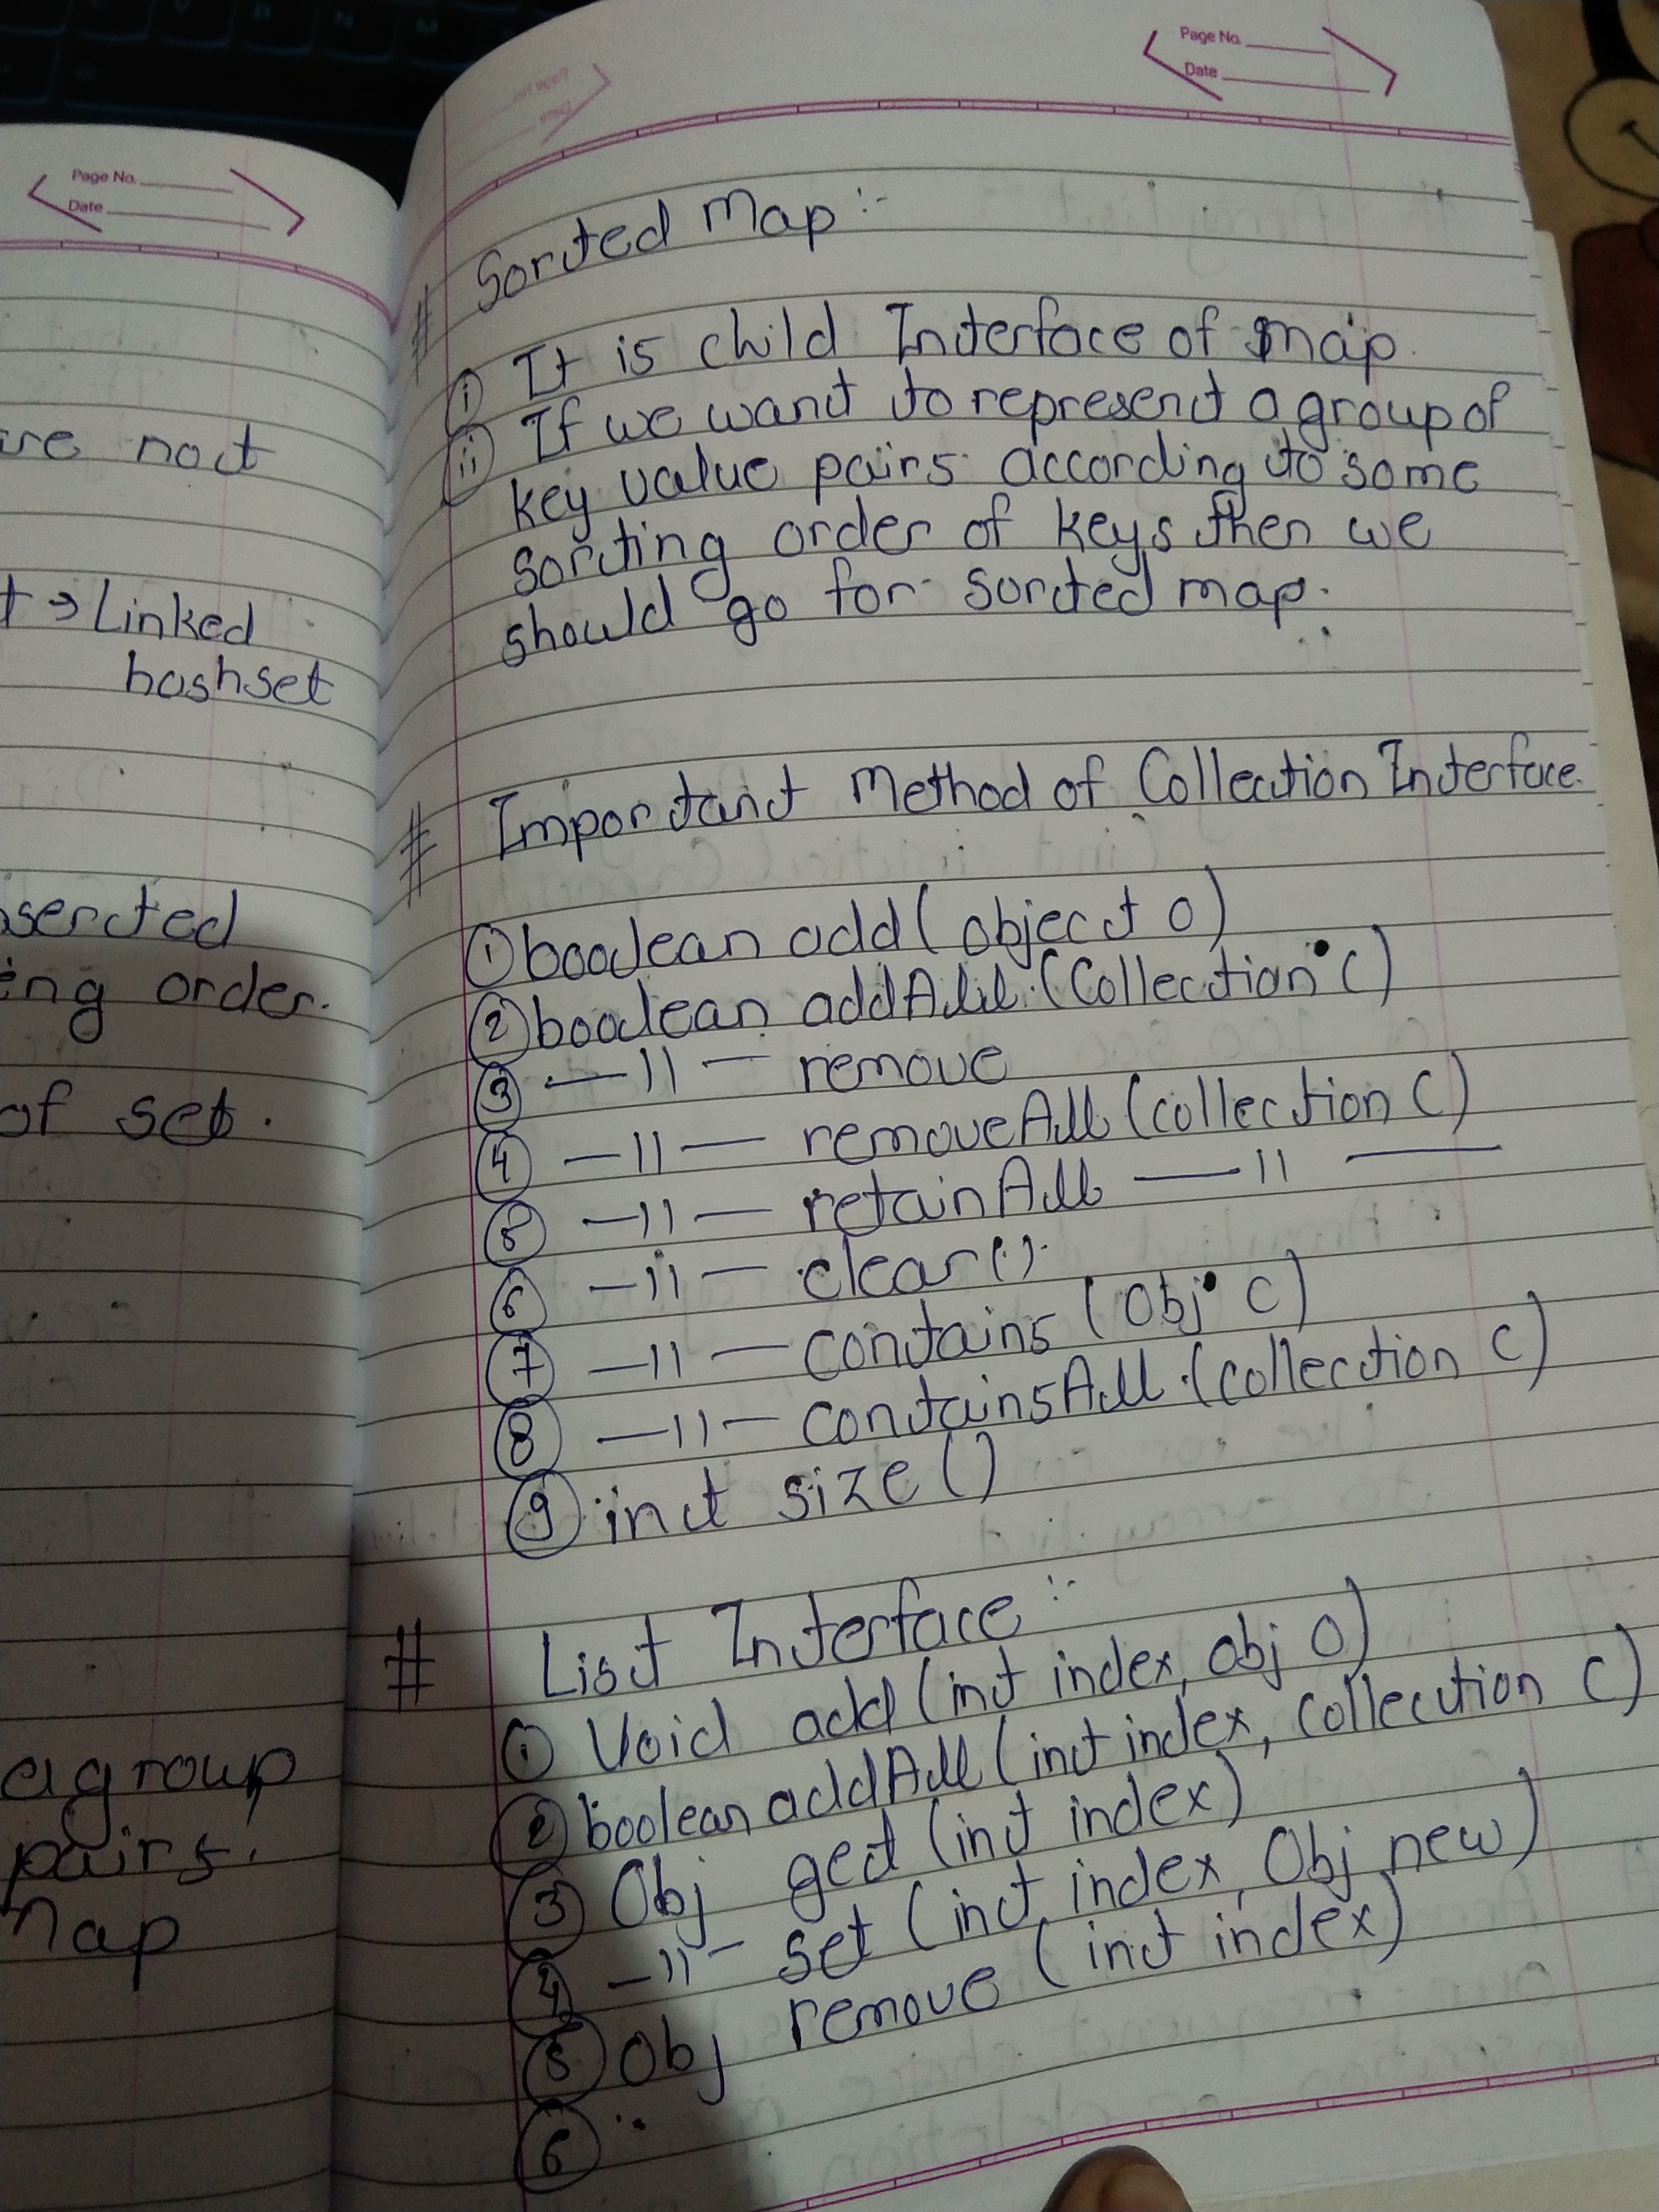 Page No.
Date
re not
t → Linked
hashset
serted
ing order.
of set.
a group
pairs.
Map
Page No.
Date
# Sorted Map :-
(i) It is child Interface of map.
(ii) If we want to represent a group of
key value pairs according to some
sorting order of keys then we
should go for sorted map.
# Important Method of Collection Interface.
(1) boolean add (object o)
(2) boolean addAll (Collection C)
(3) —11— remove
(4) —11— removeAll (collection C)
(5) —11— retainAll —11—
(6) —11— clear().
(7) —11— contains (Obj C)
(8) —11— containsAll (collection C)
(9) int size ()
# List Interface :-
(1) Void add (int index, Obj O)
(2) boolean addAll (int index, collection C)
(3) Obj get (int index)
(4) —11— set (int index, Obj new)
(5) Obj remove (int index)
(6)